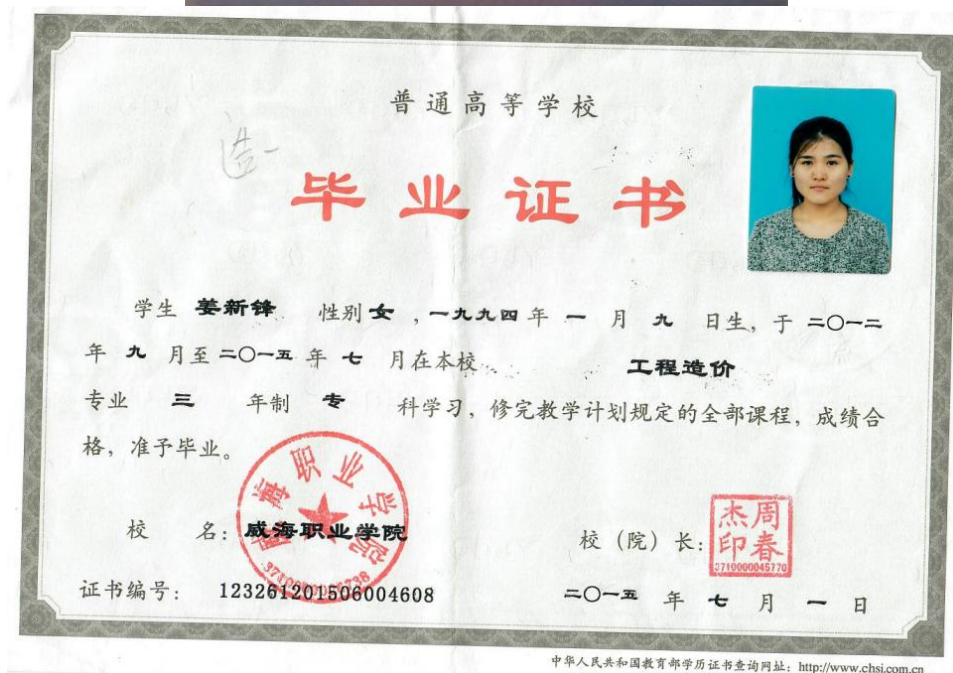 普通高等学校
造一
毕业证书
学生 姜新锋 性别 女 ，一九九四 年 一 月 九 日生，于 二〇一二
年 九 月至 二〇一五 年 七 月在本校 工程造价
专业 三 年制 专 科学习，修完教学计划规定的全部课程，成绩合
格，准予毕业。
威海职业学院
校 名：威海职业学院
校（院）长：
周春杰印
3710000045770
证书编号： 123261201506004608
二〇一五 年 七 月 一 日
中华人民共和国教育部学历证书查询网址：http://www.chsi.com.cn